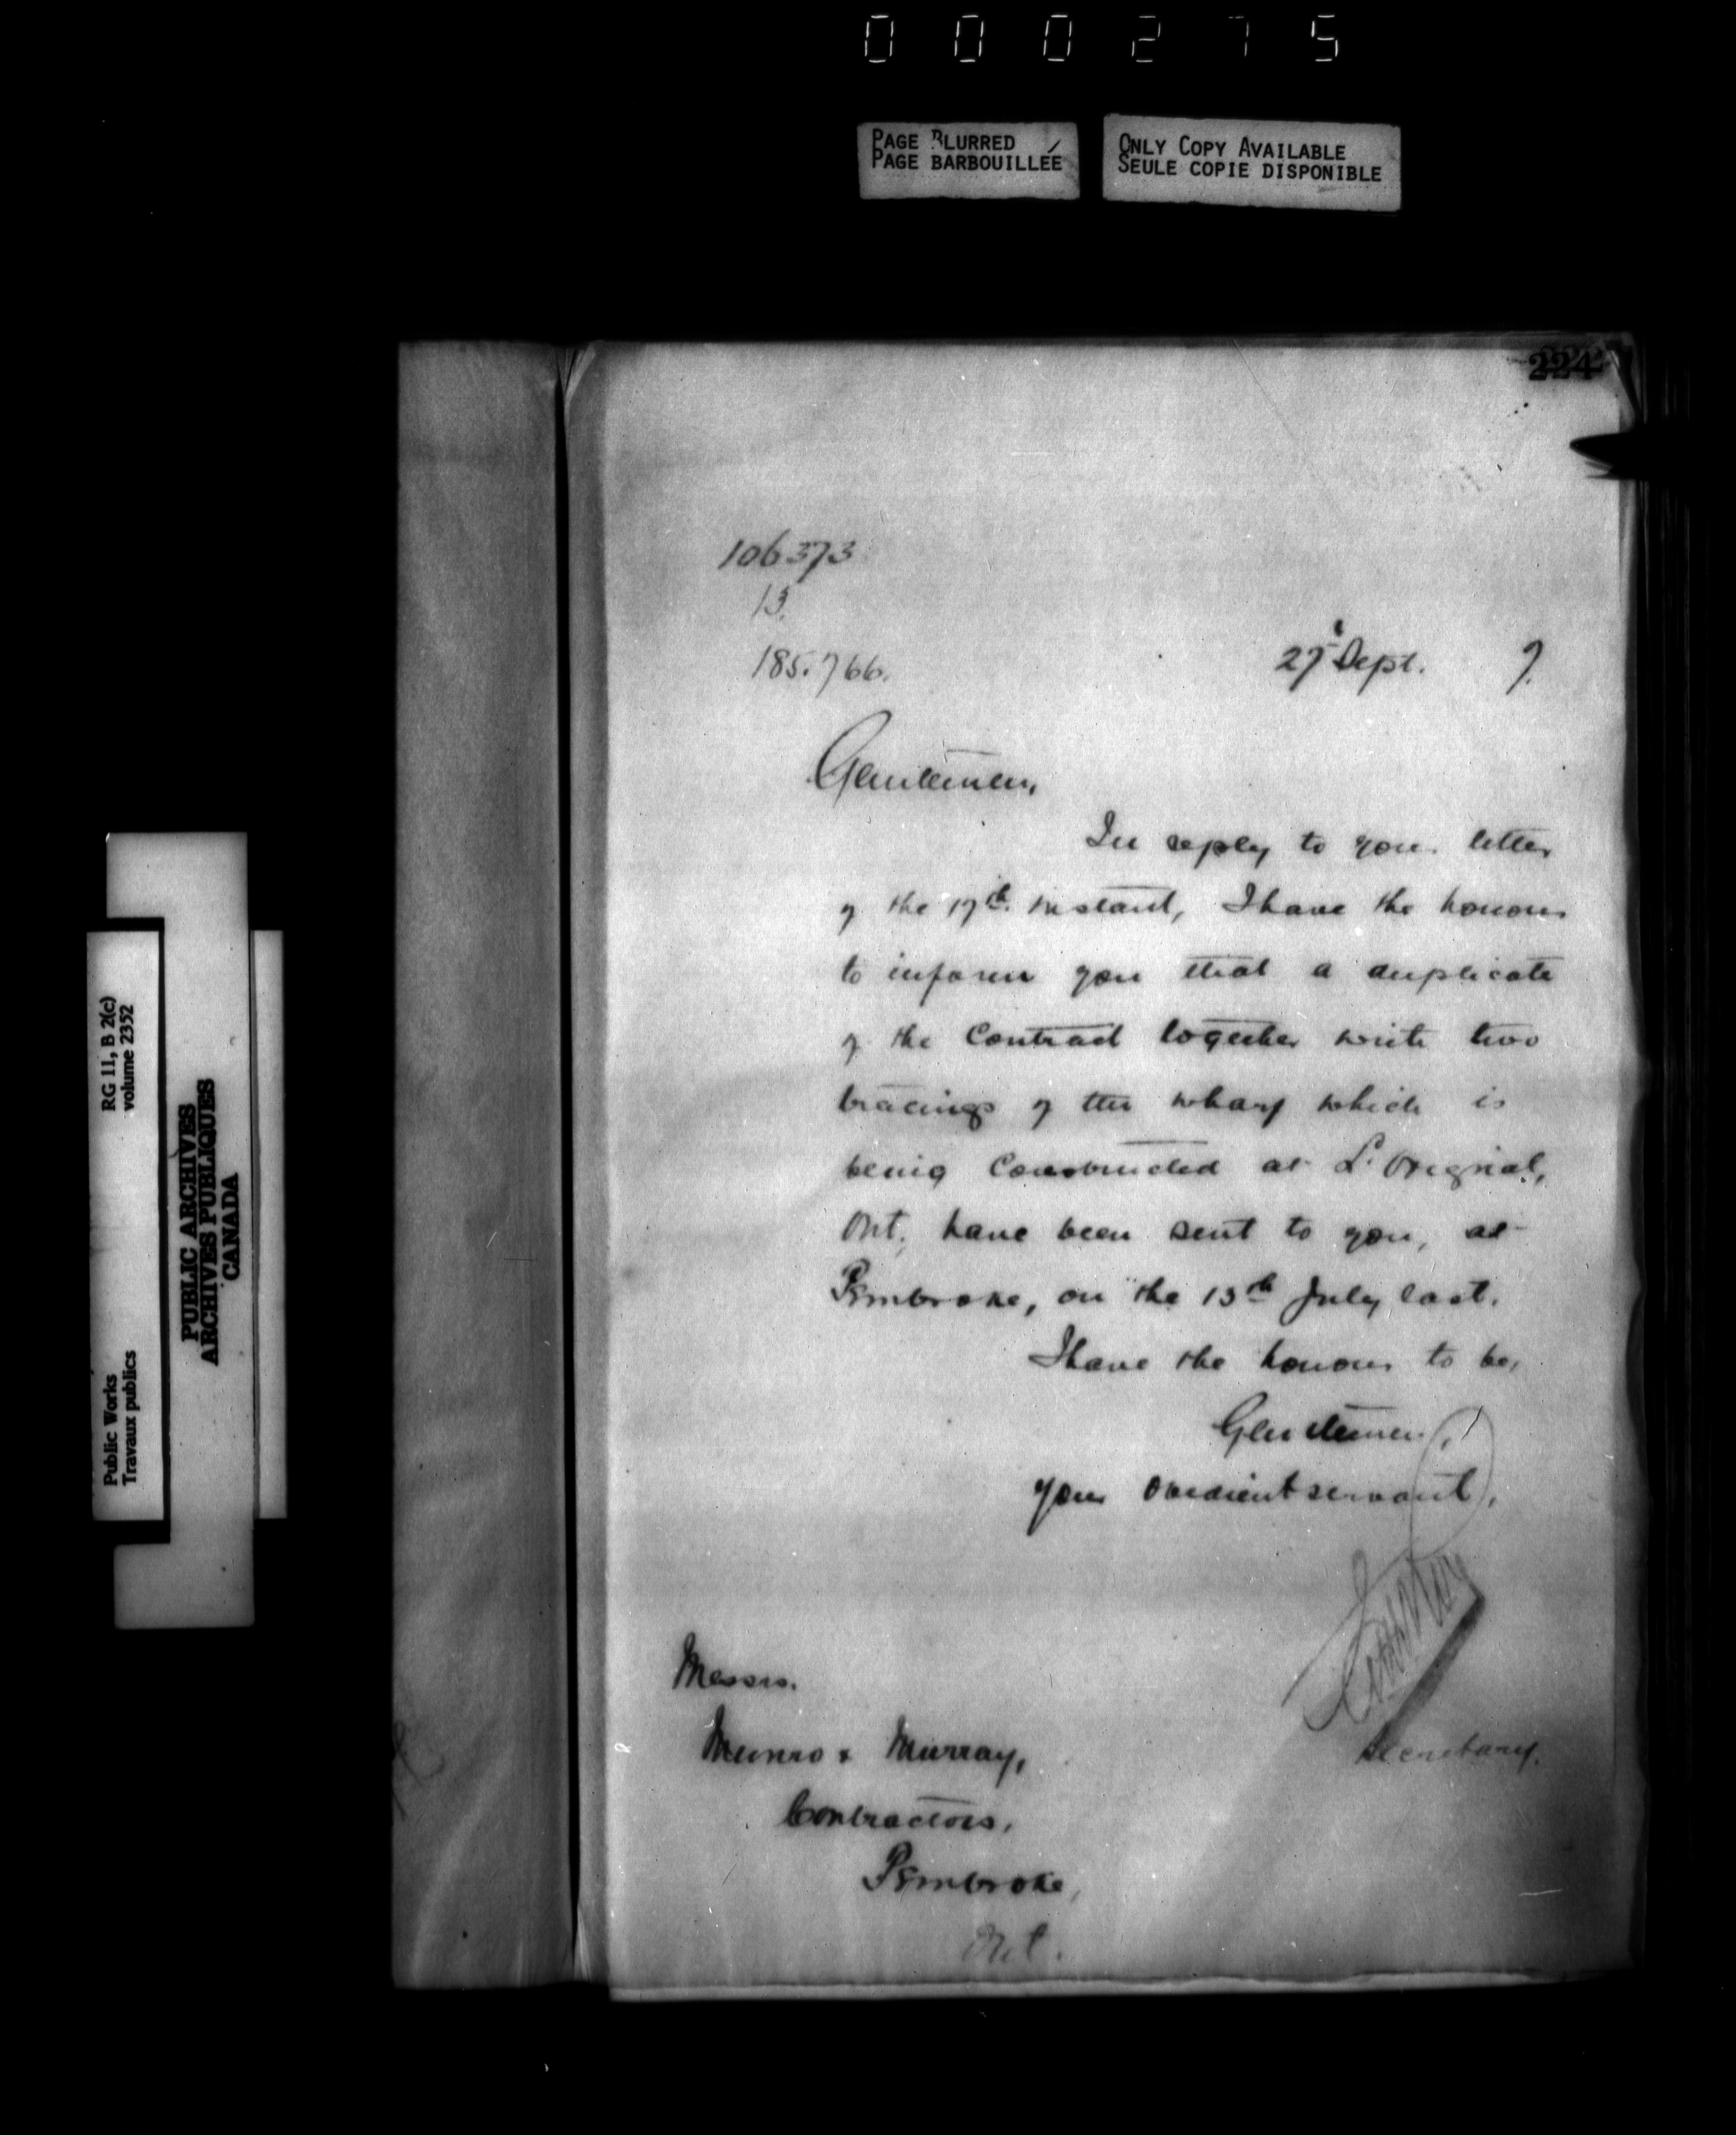 000275
PAGE BLURRED
PAGE BARBOUILLÉE
ONLY COPY AVAILABLE
SEULE COPIE DISPONIBLE
224
106373
13.
185.766.
27 Sept. 7.
Gentlemen,
In reply to your letter
of the 17th instant, I have the honour
to inform you that a duplicate
of the Contract together with two
tracings of the wharf which is
being Constructed at L'Orignal,
Ont. have been sent to you, at
Pembroke, on the 13th July last.
I have the honour to be,
Gentlemen,
Your obedient servant,
Secretary.
Messrs.
Munro & Murray,
Contractors,
Pembroke,
Ont.
RG 11, B 2(c)
volume 2352
Public Works
Travaux publics
PUBLIC ARCHIVES
ARCHIVES PUBLIQUES
CANADA